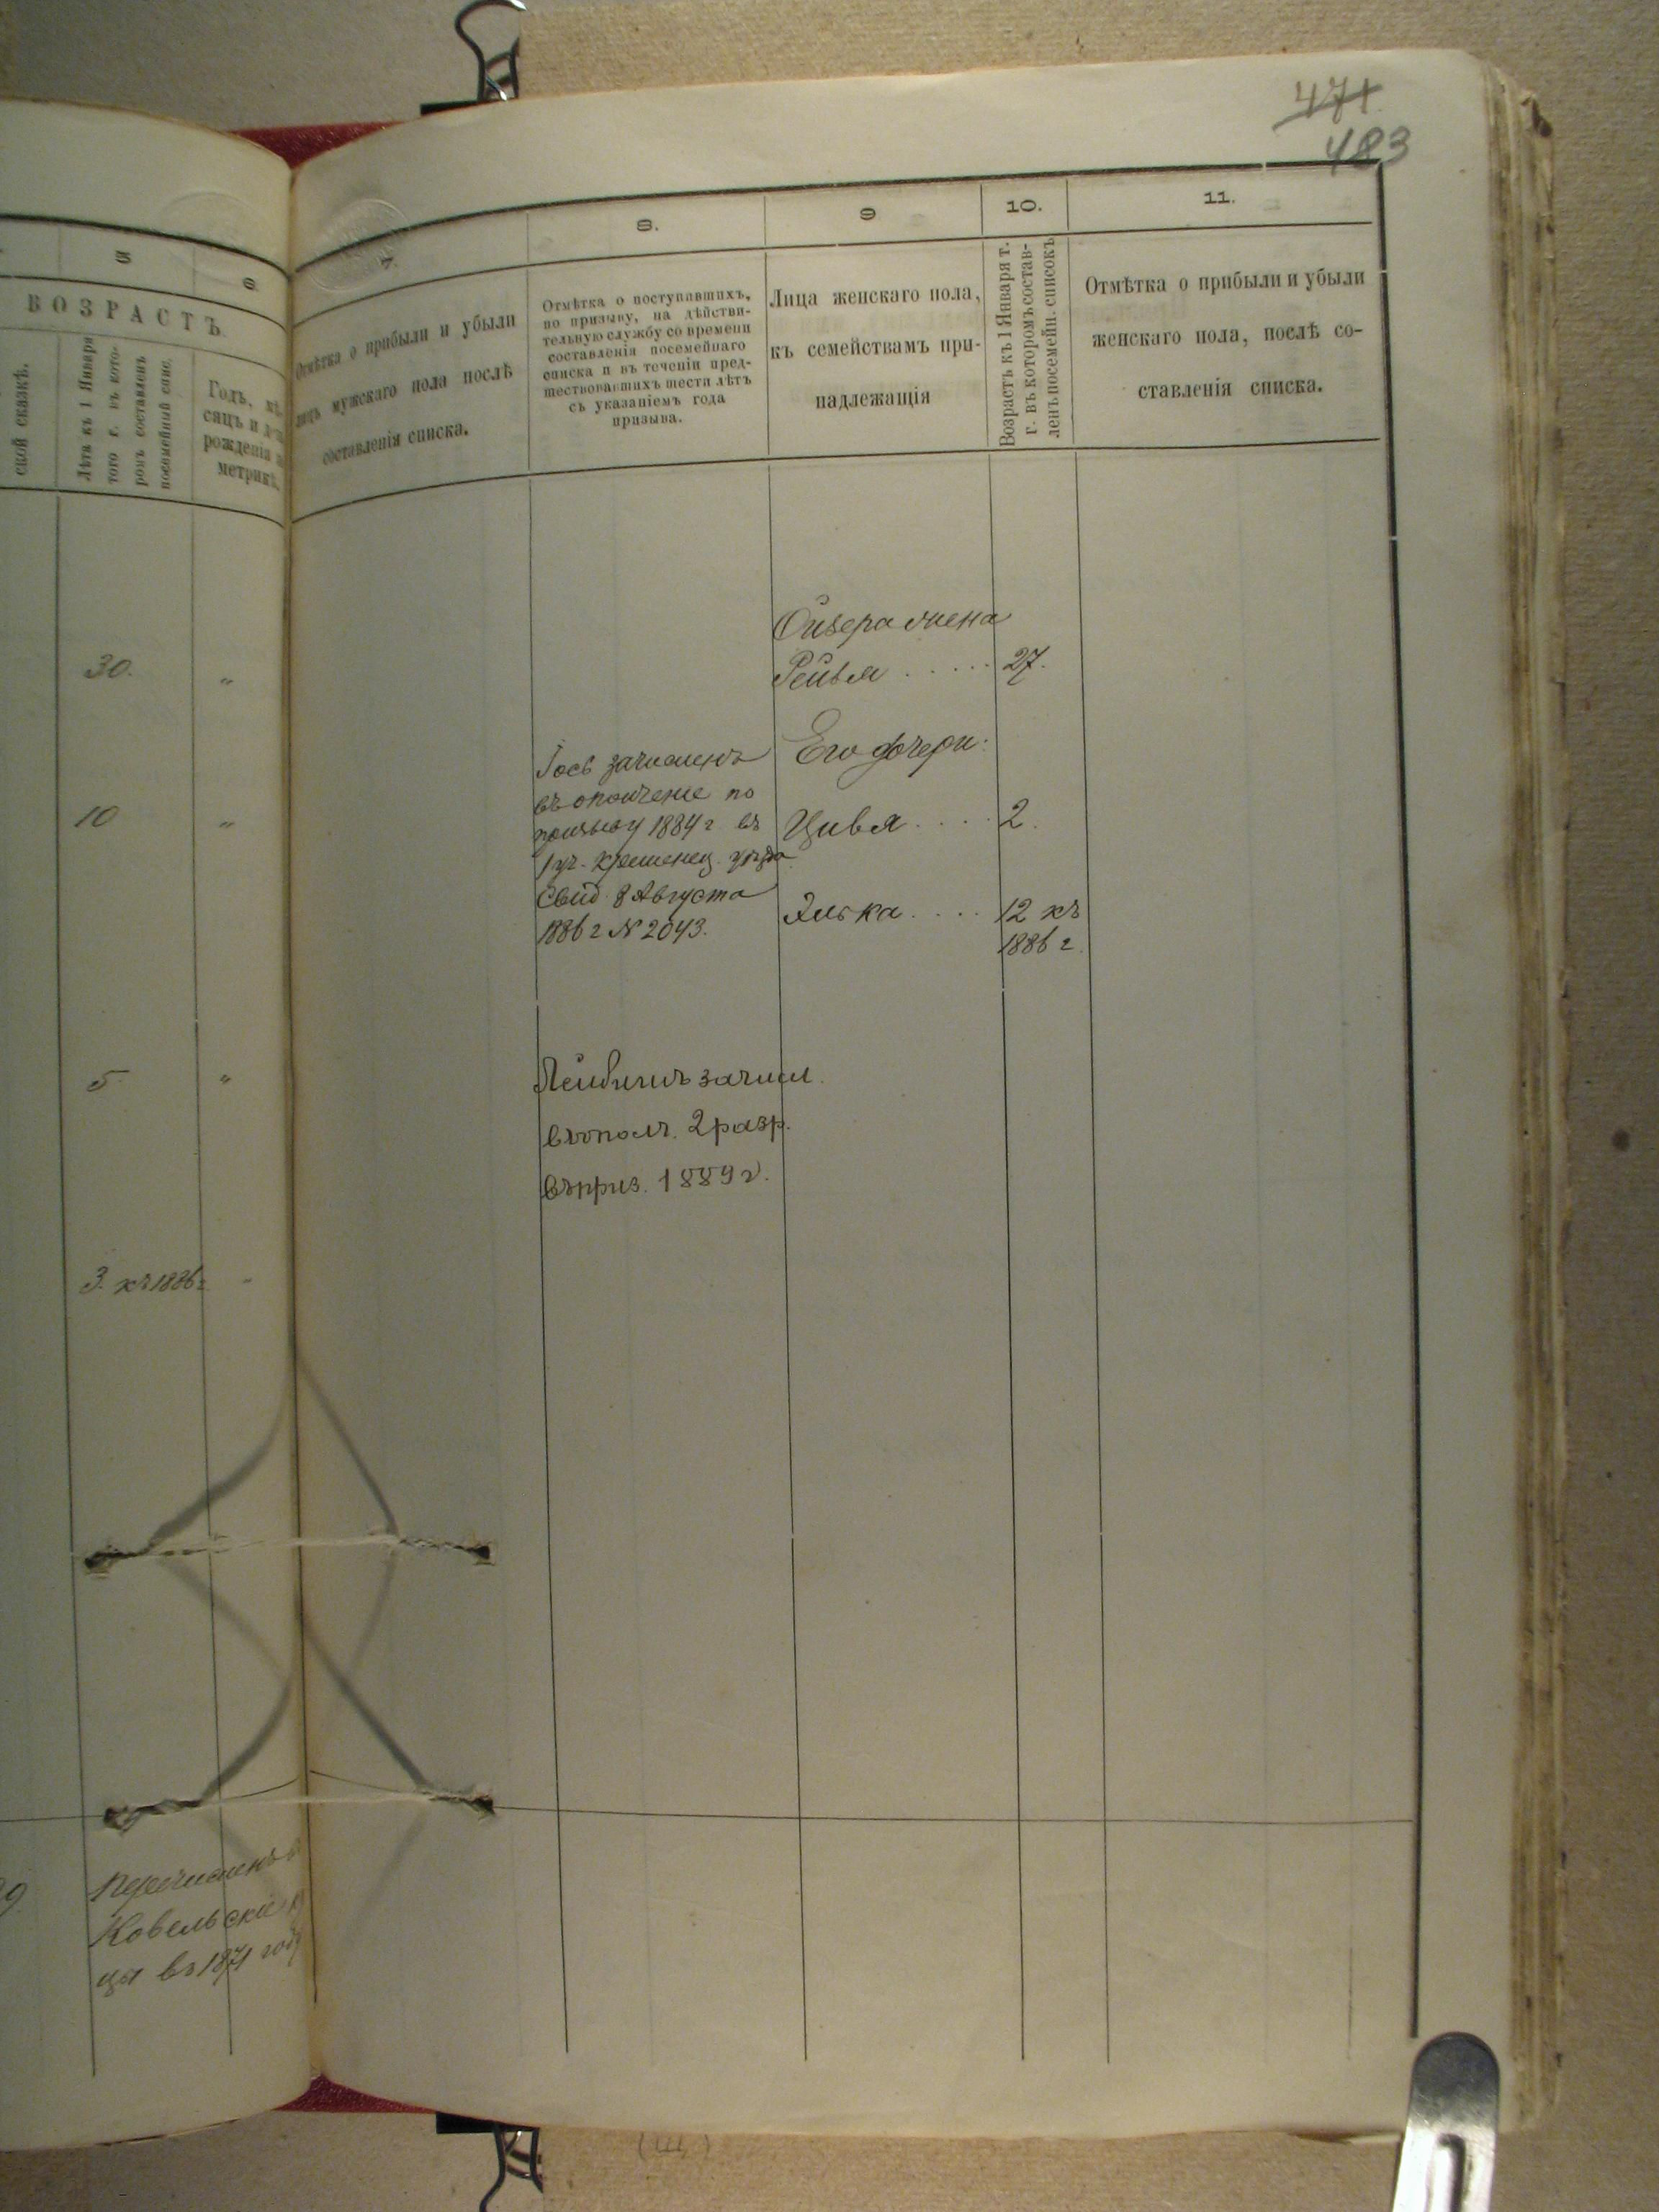 471
483
5
6
ВОЗРАСТЪ.
ской сказкѣ.
Лѣта къ 1 Января
того г. въ кото-
ромъ составленъ
посемейный спис.
Годъ, мѣ-
сяцъ и
рожденія
метрикѣ.
30. "
10 "
5 "
3. къ 1886 г. "
9
Перечисленъ въ
Ковельскіе
цы въ 1871 году
7.
Отмѣтка о прибыли и убыли
лицъ мужскаго пола послѣ
составленія списка.
8.
Отмѣтка о поступившихъ,
по призыву, на дѣйстви-
тельную службу со времени
составленія посемейнаго
списка и въ теченіи пред-
шествовавшихъ шести лѣтъ
съ указаніемъ года
призыва.
Іось зачисленъ
въ ополченіе по
призыву 1884 г въ
1 уч. Кременец. уѣзда
Свид. 8 Августа
1886 г № 2043.
зачисл.
въ ополч. 2 разр.
въ приз. 1889 г.
9
Лица женскаго пола,
къ семействамъ при-
надлежащія
10.
Возрастъ къ 1 Января т.
г. въ которомъ состав-
ленъ посемейн. списокъ
Ойзера жена
Рейзя . . . . . 27.
Его дочери:
Цивя . . . . 2.
Элька . . . . 12 къ
1886 г.
11.
Отмѣтка о прибыли и убыли
женскаго пола, послѣ со-
ставленія списка.